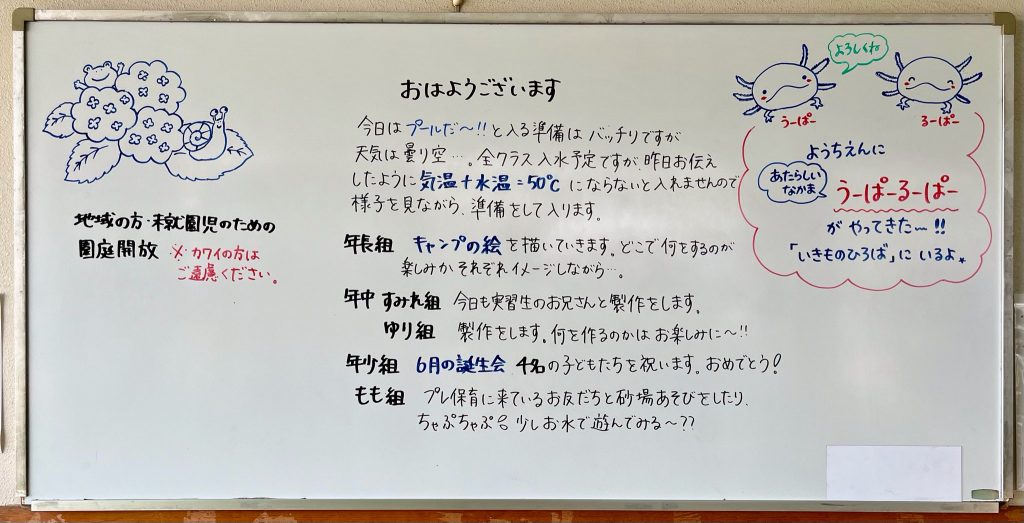 おはようございます
今日はプールだ〜!!と入る準備はバッチリですが
天気は曇り空…。全クラス入水予定ですが、昨日お伝え
したように気温+水温=50℃にならないと入れませんので
様子を見ながら、準備をして入ります。
年長組 キャンプの絵を描いていきます。どこで何をするのが
楽しみかそれぞれイメージしながら…。
年中 すみれ組 今日も実習生のお兄さんと製作をします。
ゆり組 製作をします。何を作るのかはお楽しみに〜!!
年少組 6月の誕生会 4名の子どもたちを祝います。おめでとう!
もも組 プレ保育に来ているお友だちと砂場あそびをしたり、
ちゃぷちゃぷ 少しお水で遊んでみる〜??
地域の方・未就園児のための
園庭開放 ※カワイの方は
ご遠慮ください。
よろしくね
うーぱー
るーぱー
ようちえんに
あたらしい
なかま
うーぱーるーぱー
がやってきた〜!!
「いきものひろば」にいるよ。